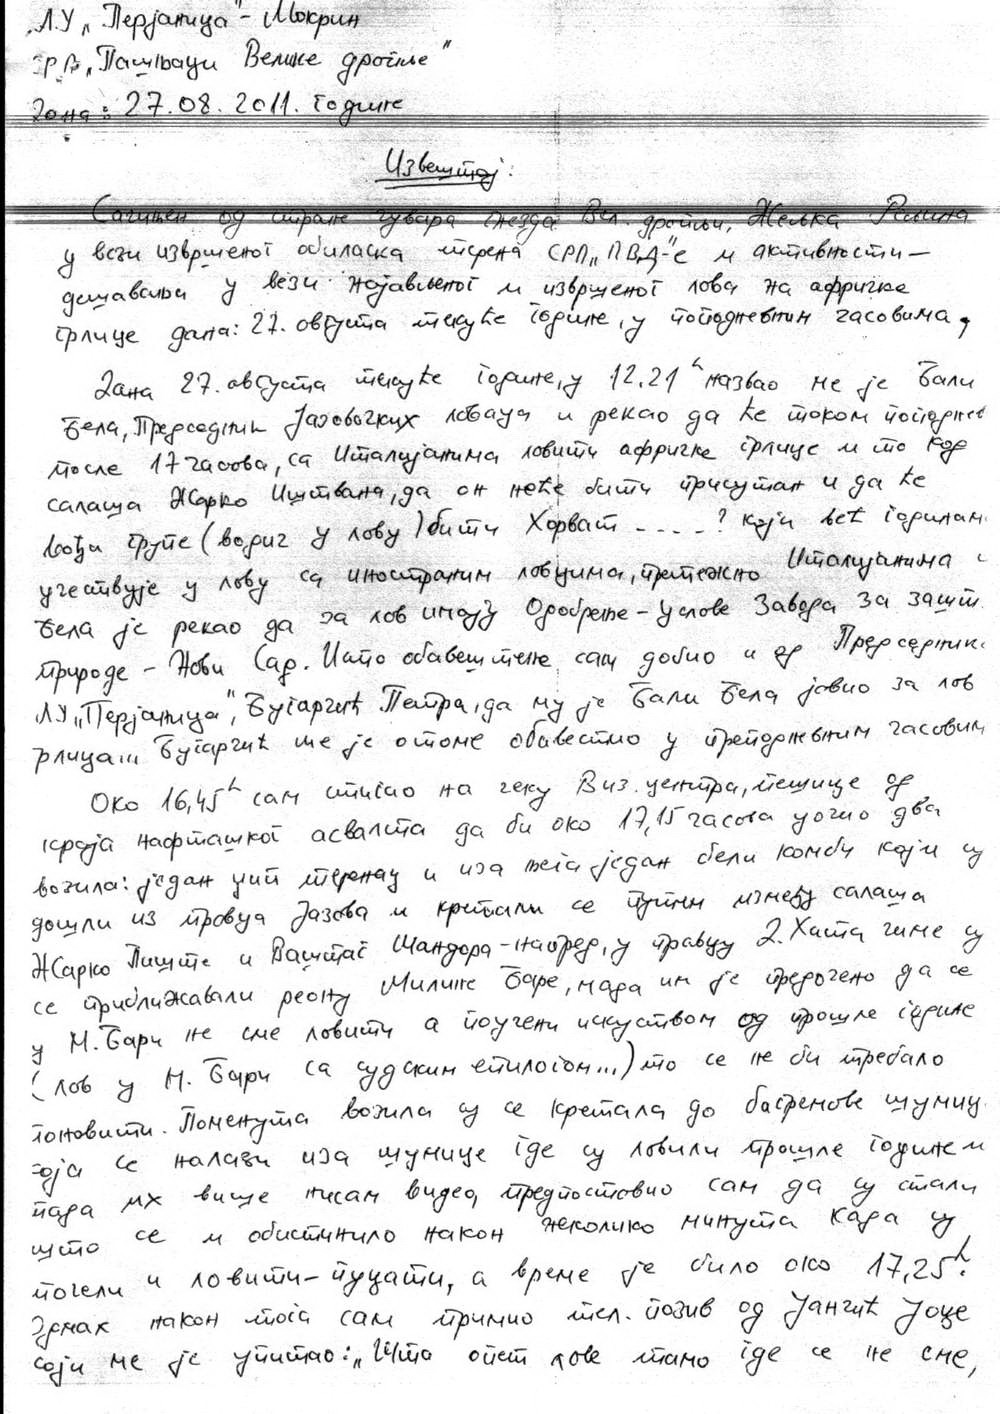 Л.У „Перјаница" - Мокрин
СРП „Пашњаци Велике дропље"
Дана: 27.08.2011. године
Извештај:
Сачињен од стране чувара гнезда Вел. дропљи, Жељка
у вези извршеног обиласка терена СРП „ПВД"-е и активности-
дешавања у вези најављеног и извршеног лова на афричке
грлице дана: 27. августа текуће године, у поподневним часовима,
Дана 27. августа текуће године, у 12.21ʰ назвао ме је Бали
Бела, Председник Јазовачких ловаца и рекао да ће током поподне
после 17 часова, са Италијанима ловити афричке грлице и то код
салаша Жарко Иштвана, да он неће бити присутан и да ће
вођа групе (водич у лову) бити Хорват ----? који већ годинам
учествује у лову са иностраним ловцима, претежно Италијанима
Бела је рекао да за лов имају Одобрење - Услове Завода за зашт
природе - Нови Сад. Исто обавештење сам добио и од Председник
ЛУ „Перјаница", Бугарчић Петра, да му је Бали Бела јавио за лов
грлица... Бугарчић ме је о томе обавестио у преподневним часовим
Око 16,45ʰ сам стигао на чеку Виз. центра, пешице од
краја нафташког асвалта да би око 17,15 часова уочио два
возила: један џип теренац и иза њега један бели комби који су
дошли из правца Јазова и кретали се путем између салаша
Жарко Пиште и Ваштаг Шандора - напред, у правцу 2. Хата чиме су
се приближавали реону Милине Баре, мада им је предочено да се
у М. Бари не сме ловити а поучени искуством од прошле године
(лов у М. Бари са судским епилогом...) то се не би требало
поновити. Поменута возила су се кретала до багремове шумиц
која се налази иза шумице где су ловили прошле године и
пада их више нисам видео, предпоставио сам да су стали
што се и обистинило након неколико минута када су
почели и ловити - пуцати, а време је било око 17,25ʰ.
Одмах након тога сам примио тел. позив од Јанчић Јоце
који ме је упитао: „Шта опет лове тамо где се не сме,